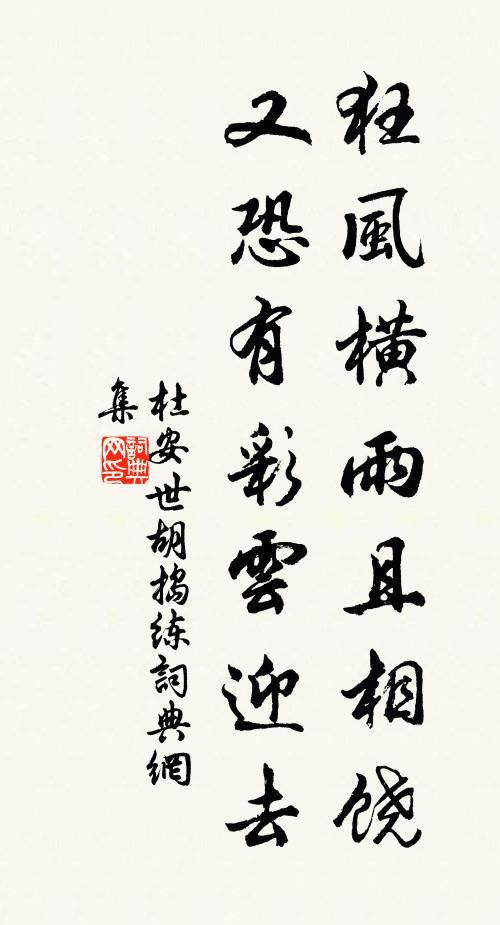 狂風橫雨且相饶
又恐有彩雲迎去
杜安世胡捣练詞典網
集
詞典網印